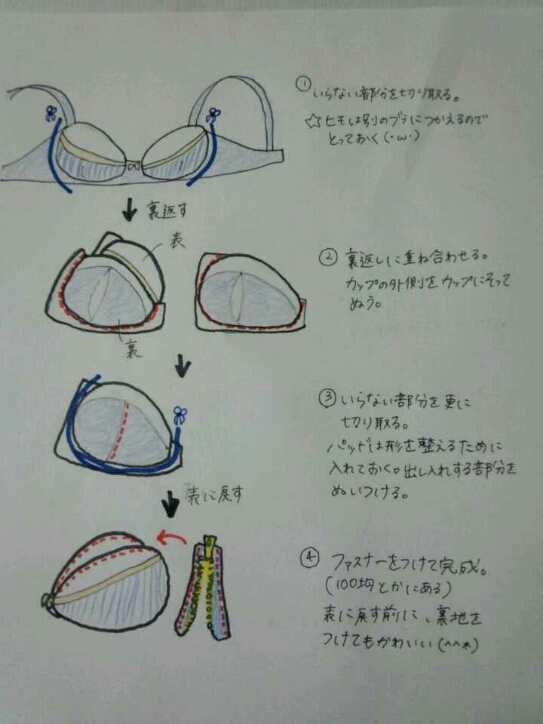 ① いらない部分を切り取る。
☆ヒモは別のブラにつかえるので
とっておく(・ω・)
裏返す
表
裏
② 裏返しに重ね合わせる。
カップの外側をカップにそって
ぬう。
③ いらない部分を更に
切り取る。
パッドは形を整えるために
入れておく。出し入れする部分を
ぬいつける。
表に戻す
④ ファスナーをつけて完成。
(100均とかにある)
表に戻す前に、裏地を
つけてもかわいい(^^*)